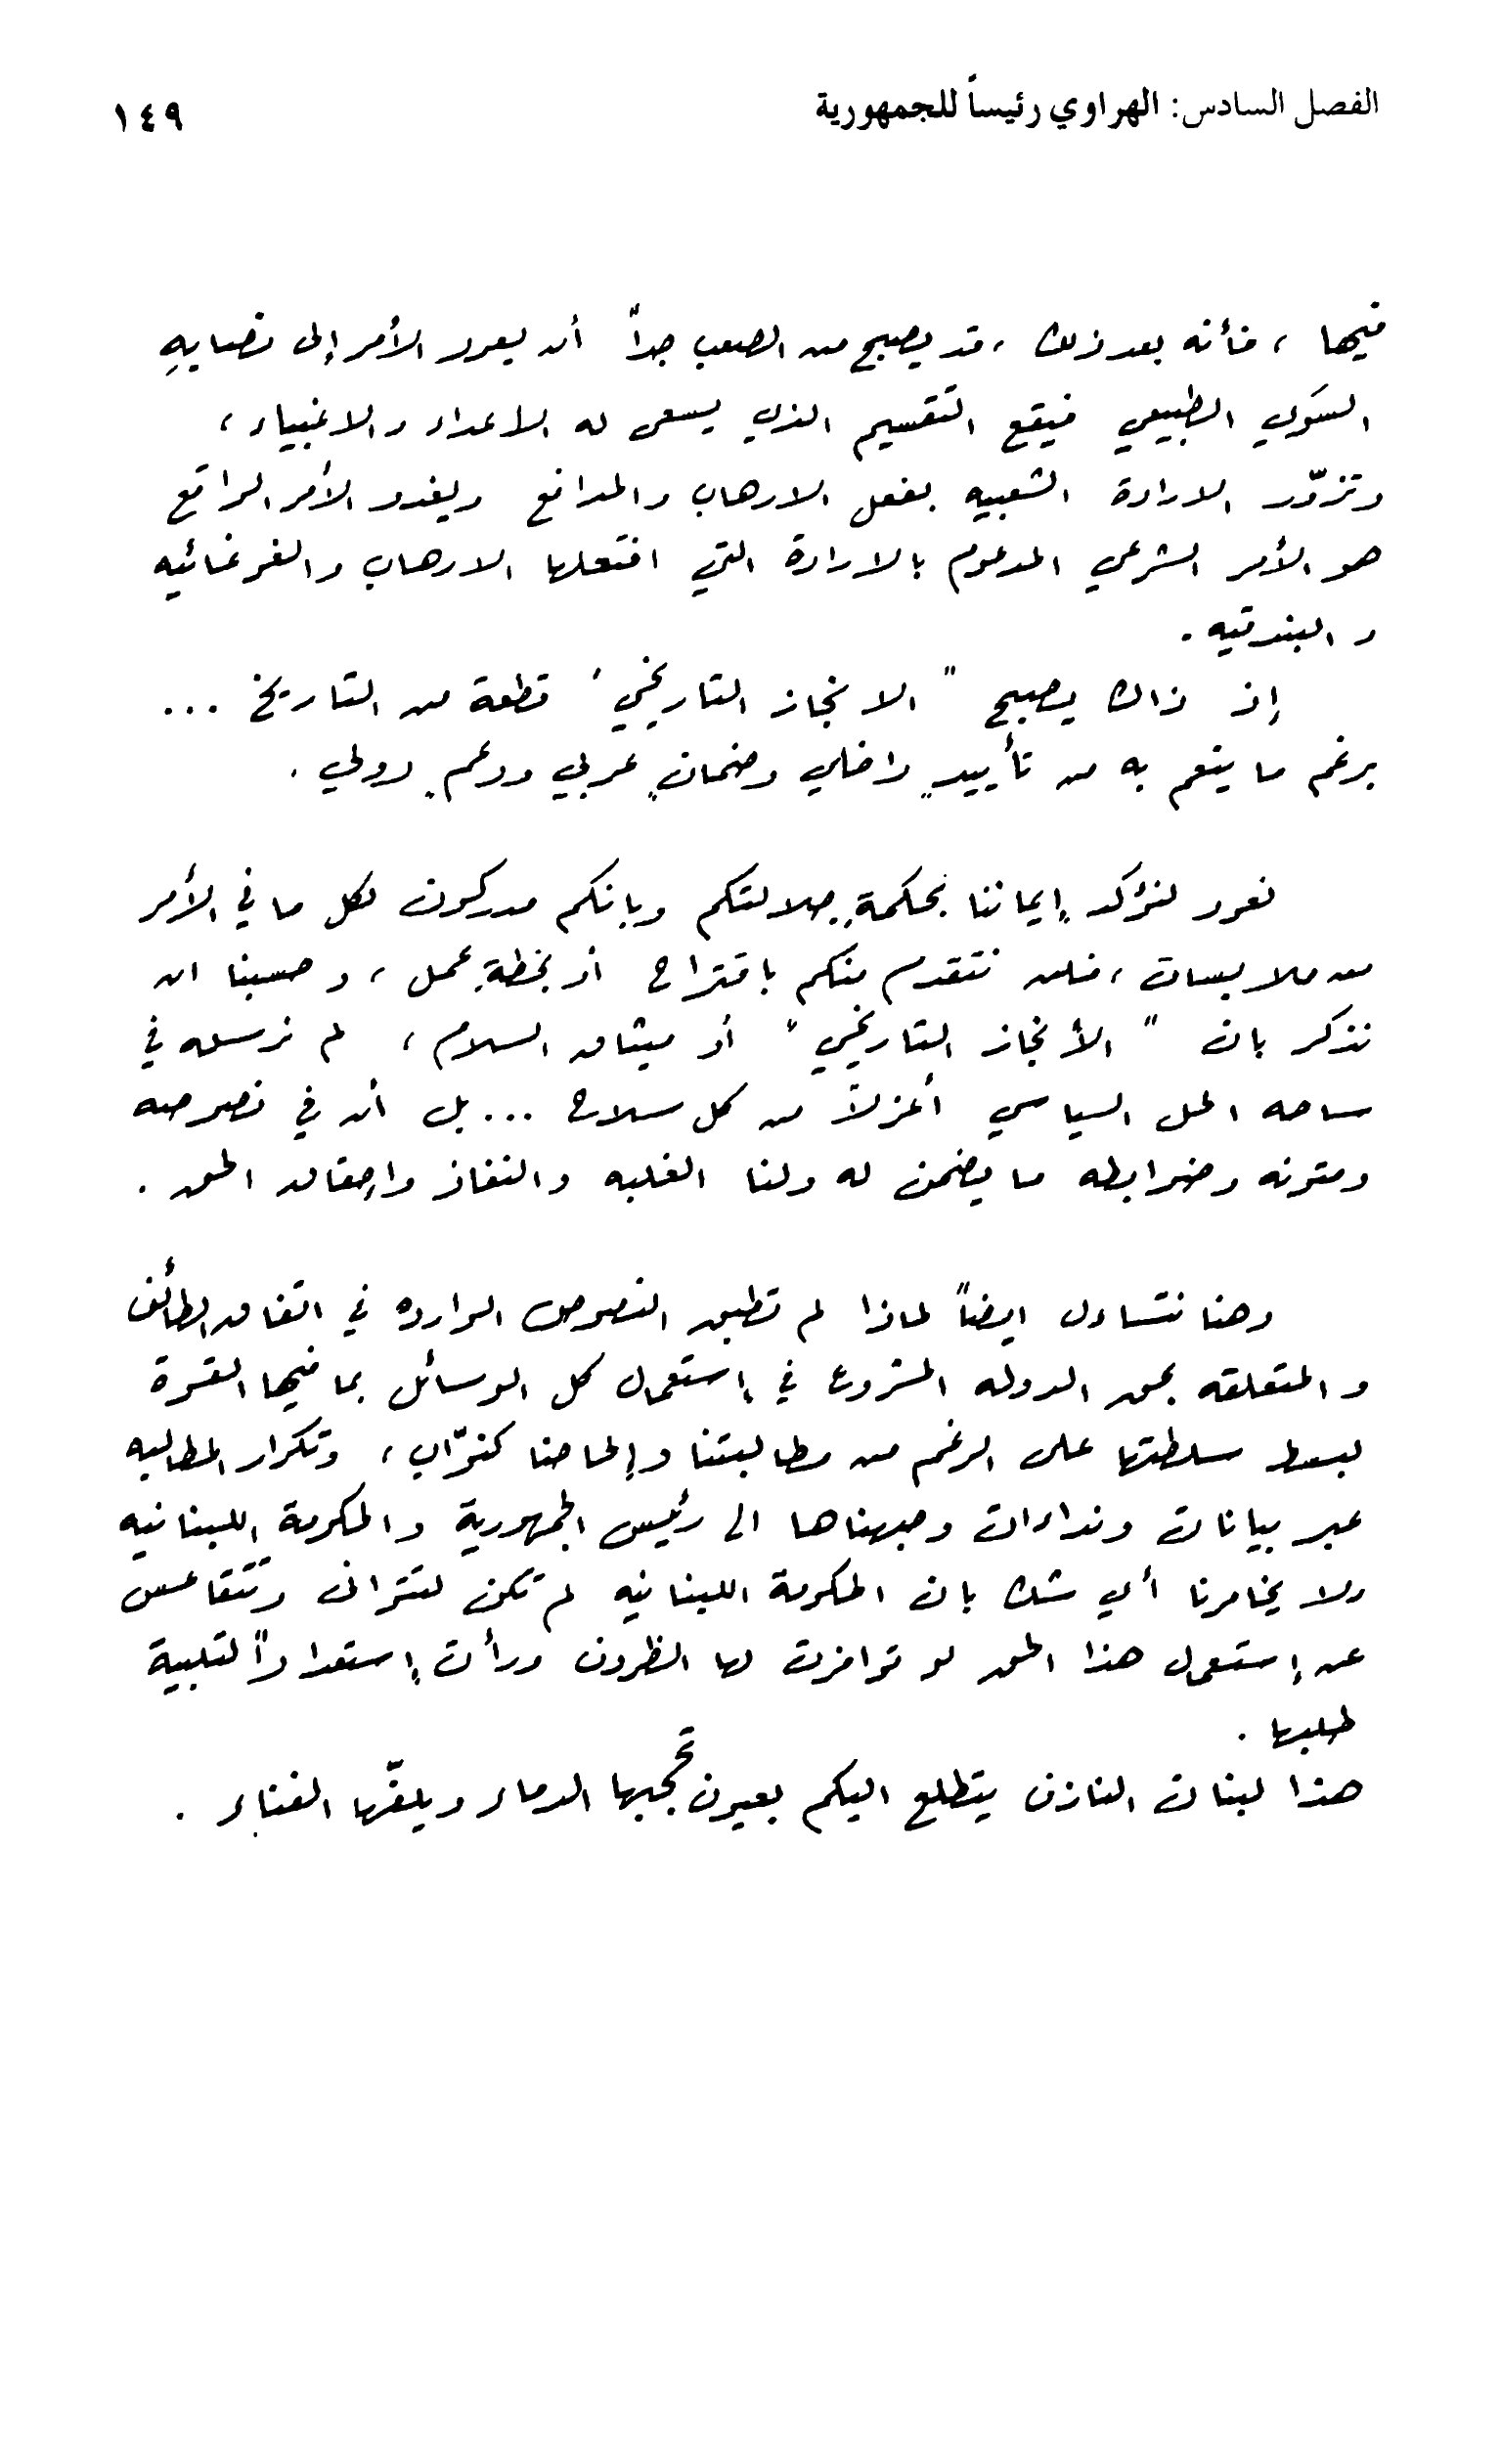 الفصل السادس: الهراوي رئيساً للجمهورية
١٤٩
فيها ، فأنه بعد ذلك ، قد يصبح من الصعب جداً أن يعود الأمر إلى نصابهِ
السَوي الطبيعي فيقع التقسيم الذي يسعى له الاعداء والاغبياء ،
وتزوّر الارادة الشعبيه بفعل الارهاب والمدافع ويغدو الأمر الواقع
هو الأمر الشرعي المدعوم بالارادة التي افتعلها الارهاب والغوغائيه
والبندقيه .
إذ ذاك يصبح " الانجاز التاريخي " قطعة من التاريخ ...
برغم ما ينعم به من تأييدٍ داخلي وضمانٍ عربي ودعمٍ دولي .
نعود لنؤكد إيماننا بحكمةِ جلالتكم وبانكم مدركون لكل ما في الأمر
من ملابسات ، فلن نتقدم منكم باقتراح أو بخطةِ عمل ، وحسبنا ان
نذكر بان " الأنجاز التاريخي " أو ميثاق السلام ، لم نرسله في
ساحه الحل السياسي أعزلاً من كل سلاح ... بل أن في نصوصه
ومتونه وضوابطه ما يضمن له ولنا الغلبه والنفاذ وإحقاق الحق .
وهنا نتساءل ايضاً لماذا لم تطبق النصوص الوارده في اتفاق الطائف
والمتعلقه بحق الدوله المشروع في إستعمال كل الوسائل بما فيها القوة
لبسط سلطتها على الرغم من مطالبتنا وإلحاحنا كنوّاب ، وتكرار المطالبه
عبر بيانات ونداءات وجهناها الى رئيس الجمهورية والحكومة اللبنانيه
ولا يخامرنا أي شك بان الحكومة اللبنانيه لم تكن لتتوانى وتتقاعس
عن إستعمال هذا الحق لو توافرت لها الظروف ورأت إستعداداً لتلبية
طلبها .
هذا لبنان النازف يتطلع اليكم بعيون تحجبها الدماء ويلفّها الفناء .